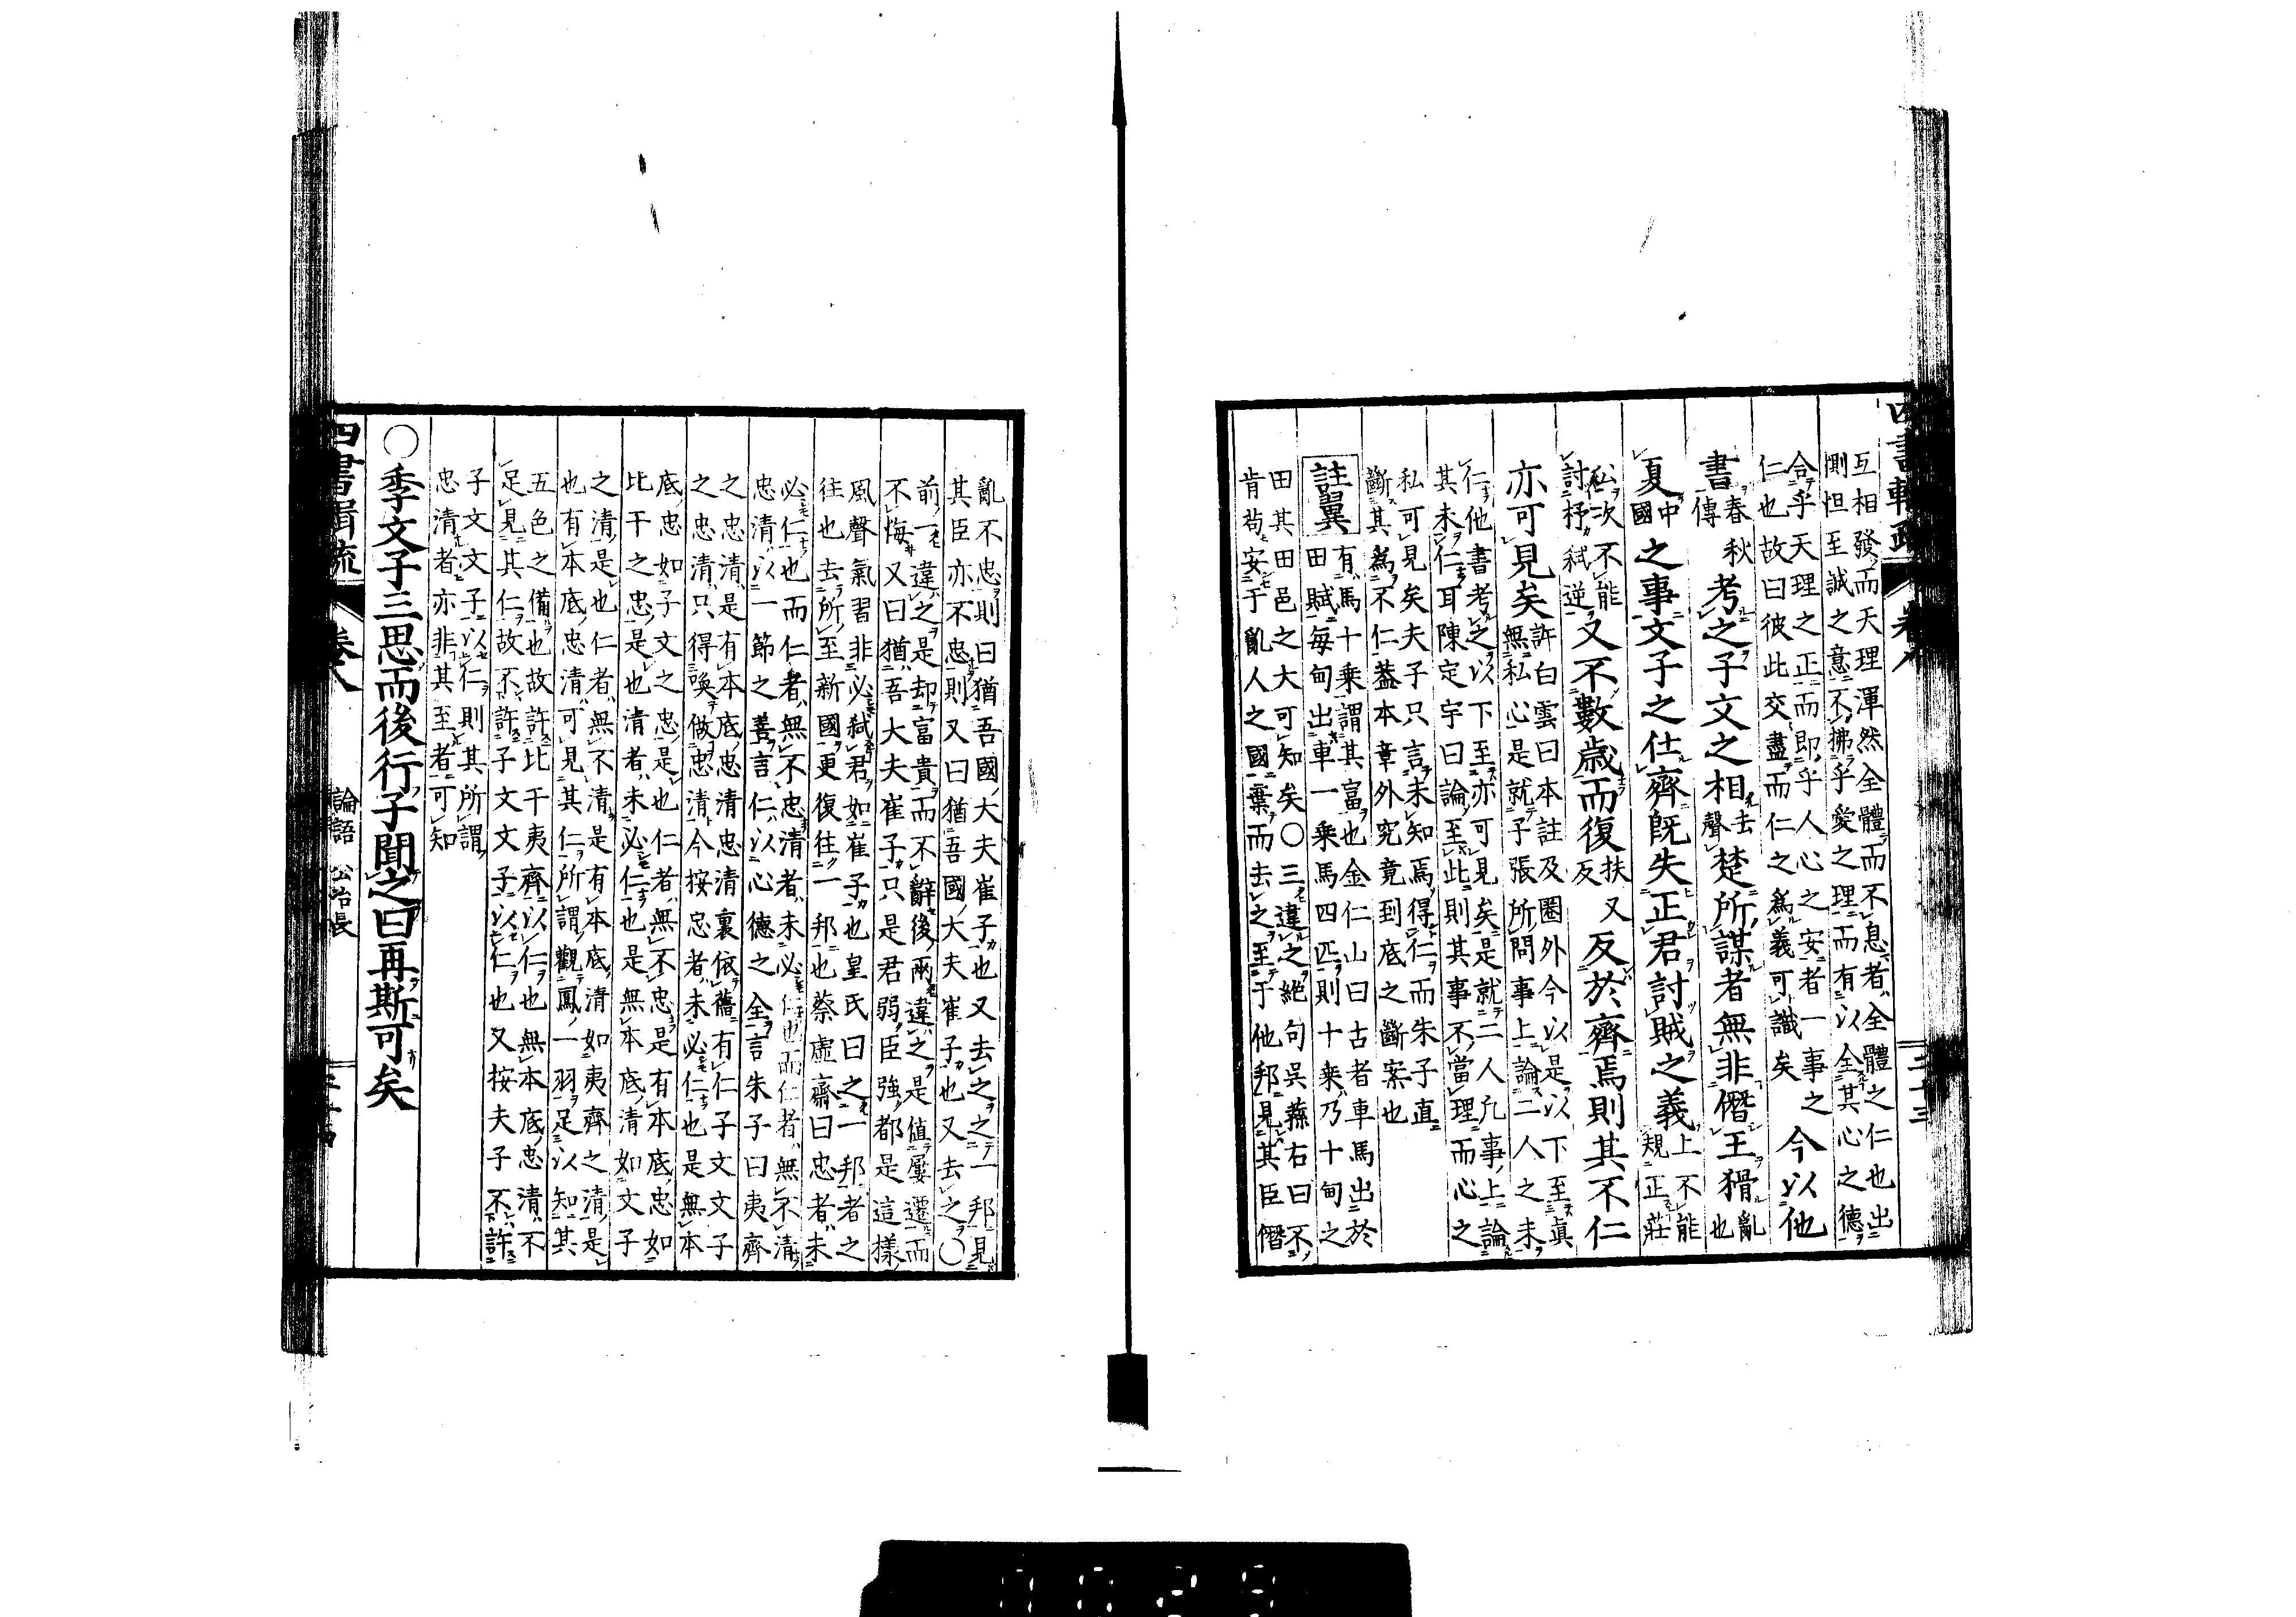 四書輯疏 卷八 二十三
互相發而天理渾然全體而不息者全體之仁也出
惻怛至誠之意不拂乎愛之理而有以全其心之德
合乎天理之正而即乎人心之安者一事之
仁也故曰彼此交盡而仁之為義可識矣
今以他
書春秋傳考之子文之相去聲楚所謀者無非僭王猾亂也
夏中國之事文子之仕齊既失正君討賊之義上不能規正莊
公次不能討杼弑逆又不數歳而復扶又反反於齊焉則其不仁
亦可見矣
許白雲曰本註及圏外今以是以下至真
無私心是就子張所問事上論二人之未
仁他書考之以下至亦可見矣是就二人凡事上論
其未仁耳陳定宇曰論至此則其事不當理而心之
私可見矣夫子只言未知焉得仁而朱子直
斷其為不仁蓋本章外究竟到底之斷案也
註翼
有馬十乗謂其富也金仁山曰古者車馬出於
田賦毎甸出車一乗馬四匹則十乗乃十甸之
田其田邑之大可知矣○三違之絶句吳蓀右曰不
肯苟安于亂人之國棄而去之至于他邦見其臣僭
亂不忠則曰猶吾國大夫崔子也又去之之一邦見
其臣亦不忠則又曰猶吾國大夫崔子也又去之○
前一違之是却富貴而不辭後兩違之是値屢遷而
不悔又曰猶吾大夫崔子只是君弱臣強都是這樣
風聲氣習非必弑君如崔子也皇氏曰之一邦者之
往也去所至新國更復往一邦也蔡虚齋曰忠者未
必仁也而仁者無不忠清者未必仁也而仁者無不清
忠清以一節之善言仁以心德之全言朱子曰夷齊
之忠清是有本底忠清忠清裏依舊有仁子文文子
之忠清只得喚做忠清今按忠者未必仁也是無本
底忠如子文之忠是也仁者無不忠是有本底忠如
比干之忠是也清者未必仁也是無本底清如文子
之清是也仁者無不清是有本底清如夷齊之清是
也有本底忠清可見其仁所謂觀鳳一羽足以知其
五色之備也故許比干夷齊以仁也無本底忠清不
足見其仁故不許子文文子以仁也又按夫子不許
子文文子以仁則其所謂
忠清者亦非其至者可知
○季文子三思而後行子聞之曰再斯可矣
四書輯疏 卷八 論語 公冶長 二十四